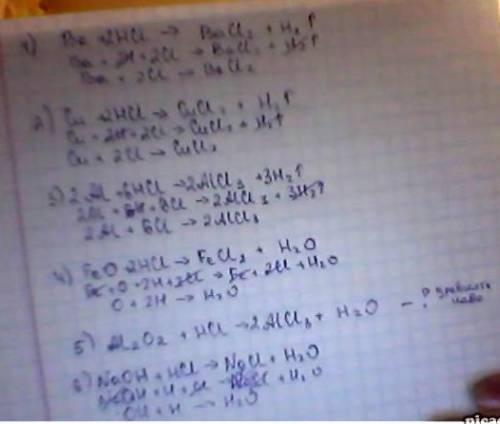 1) Ba + 2HCl → BaCl₂ + H₂↑
Ba + 2H + 2Cl → BaCl₂ + H₂↑
Ba + 2Cl → BaCl₂
2) Cu + 2HCl → CuCl₂ + H₂↑
Cu + 2H + 2Cl → CuCl₂ + H₂↑
Cu + 2Cl → CuCl₂
3) 2Al + 6HCl → 2AlCl₃ + 3H₂↑
2Al + 6H + 6Cl → 2AlCl₃ + 3H₂↑
2Al + 6Cl → 2AlCl₃
4) FeO + 2HCl → FeCl₂ + H₂O
Fe + O + 2H + 2Cl → Fe + 2Cl + H₂O
O + 2H → H₂O
5) Al₂O₂ + HCl → 2AlCl₃ + H₂O – ?
6) NaOH + HCl → NaCl + H₂O
NaOH + H + Cl → NaCl + H₂O
OH + H → H₂O